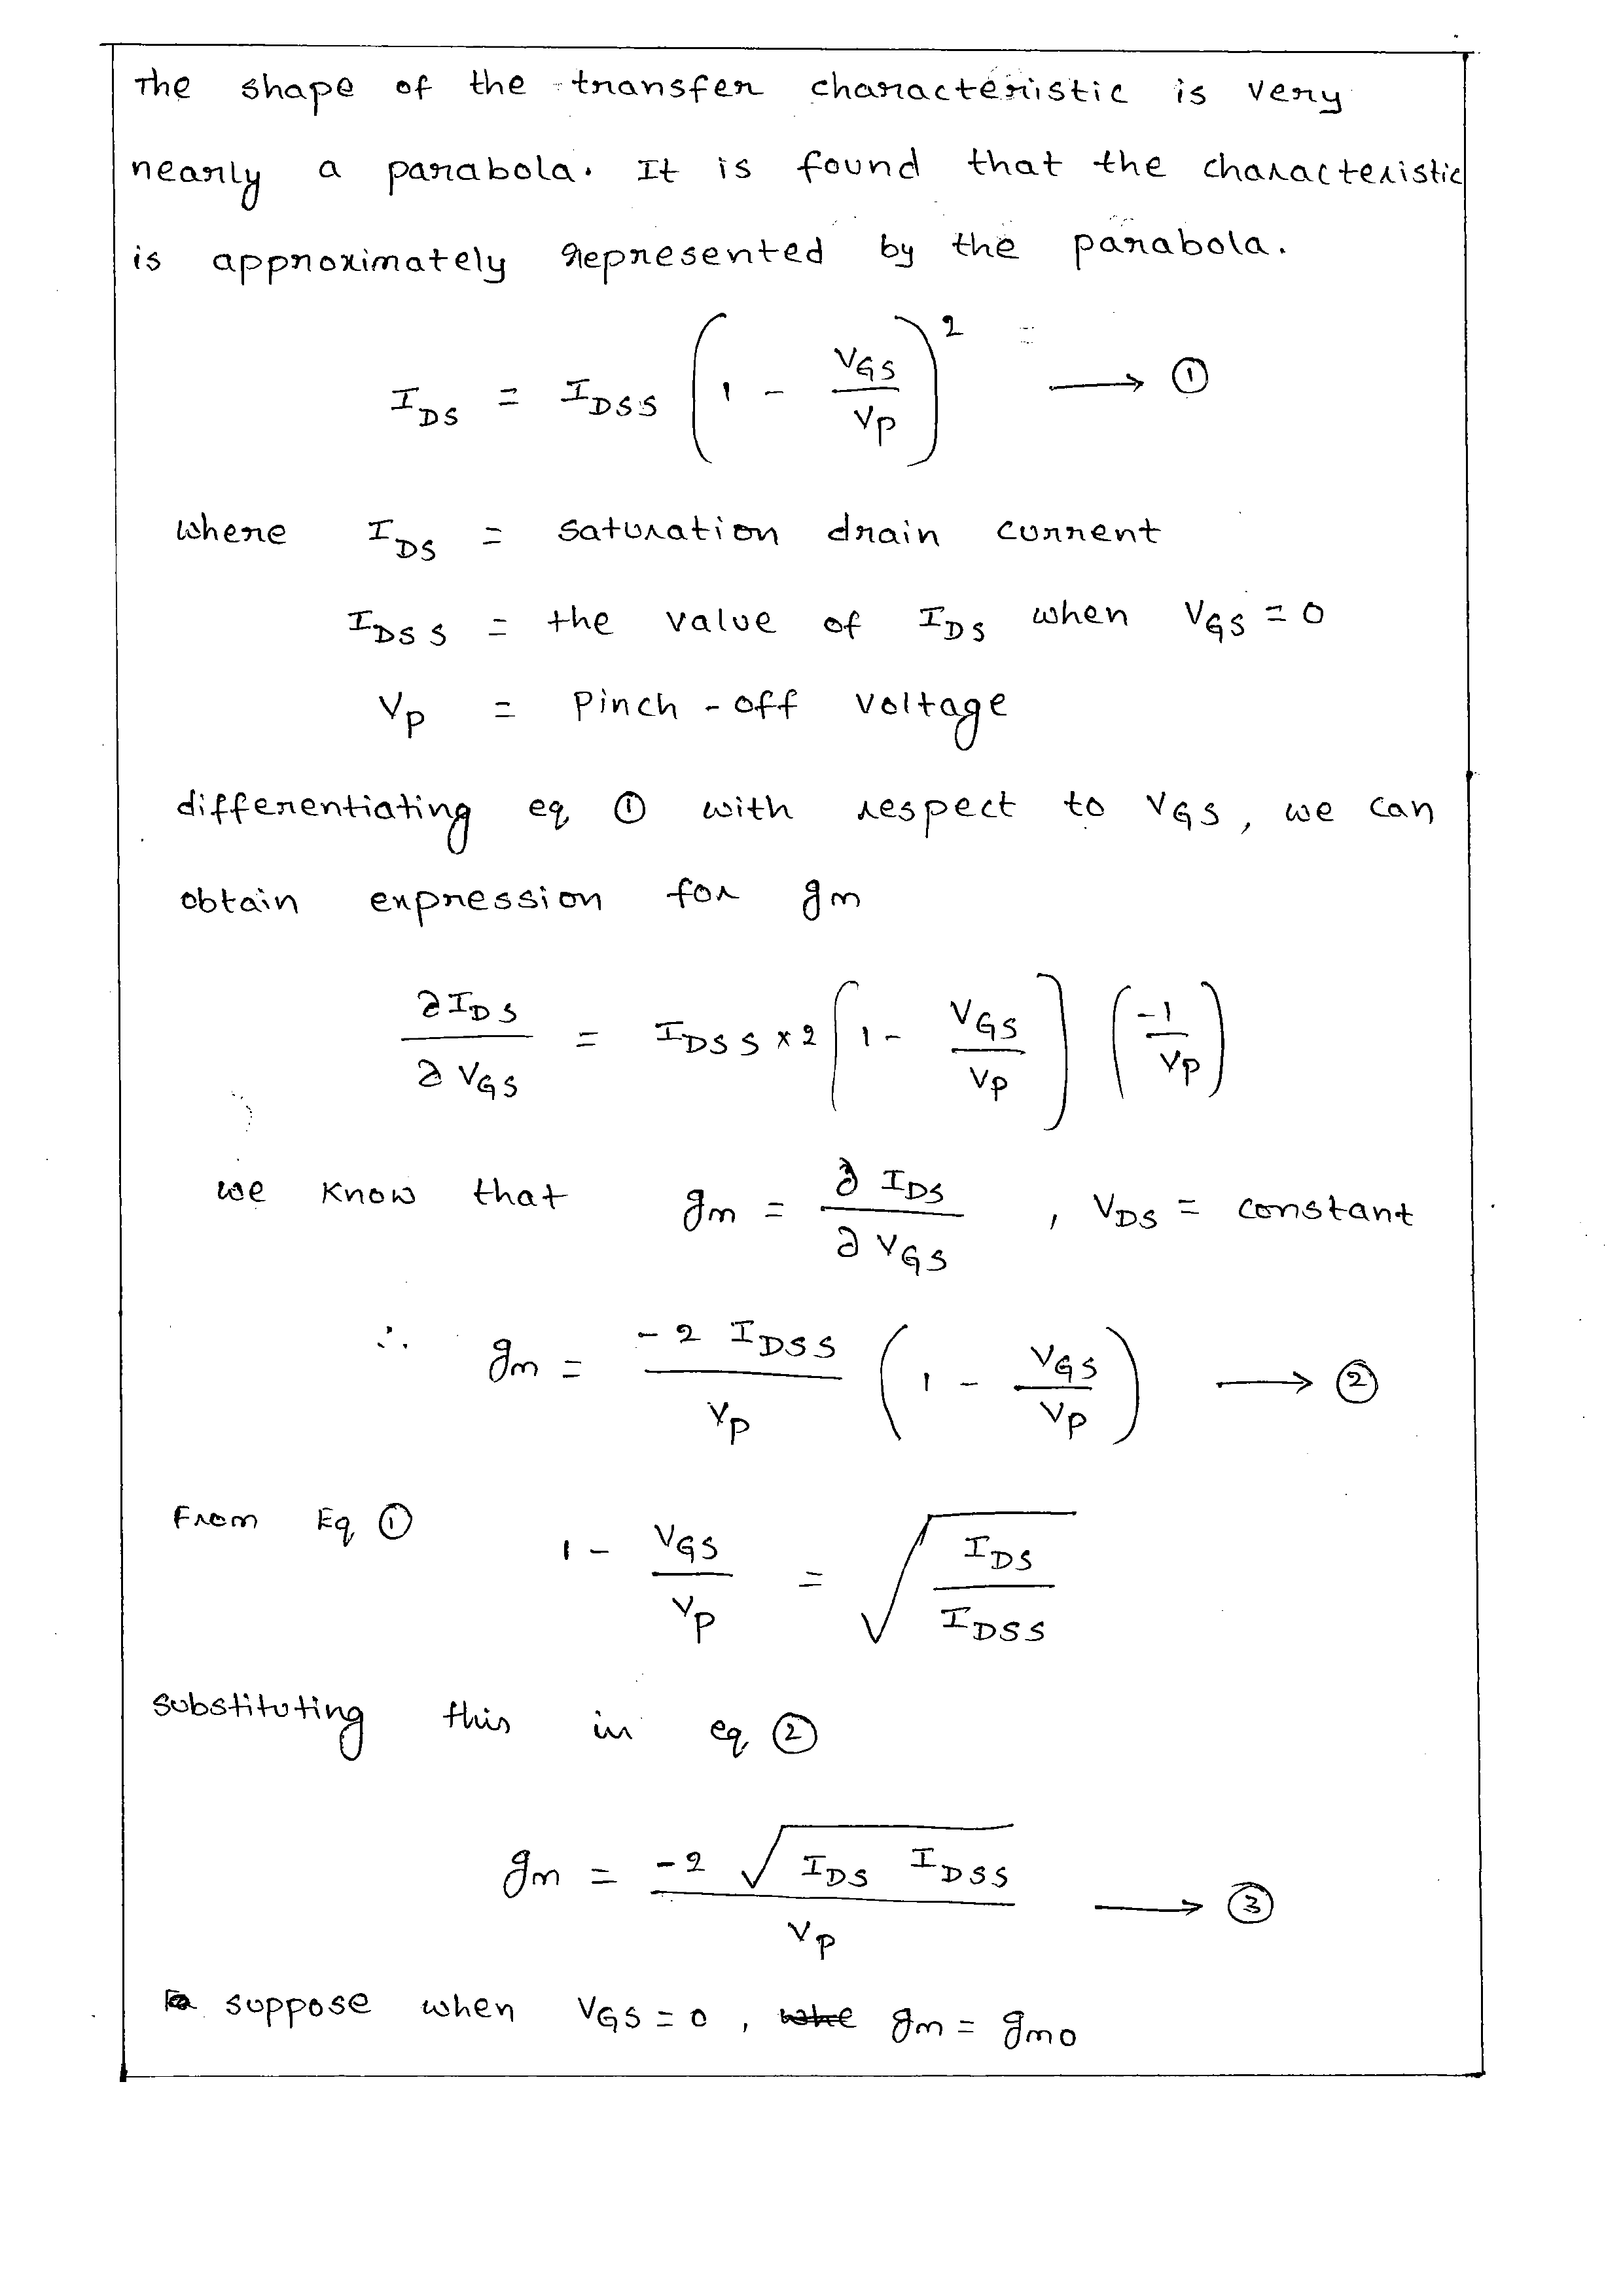 The shape of the transfer characteristic is very
nearly a parabola. It is found that the characteristic
is approximately represented by the parabola.
I_DS = I_DSS (1 - V_GS/V_P)^2 ⟶ ①
where I_DS = saturation drain current
I_DSS = the value of I_DS when V_GS = 0
V_P = Pinch-off voltage
differentiating eq ① with respect to V_GS, we can
obtain expression for gm
∂I_DS/∂V_GS = I_DSS × 2 [1 - V_GS/V_P] (-1/V_P)
we know that gm = ∂I_DS/∂V_GS , V_DS = constant
∴ gm = -2 I_DSS/V_P (1 - V_GS/V_P) ⟶ ②
From Eq ① 1 - V_GS/V_P = √(I_DS/I_DSS)
substituting this in eq ②
gm = -2 √(I_DS I_DSS)/V_P ⟶ ③
suppose when V_GS = 0, gm = gmo